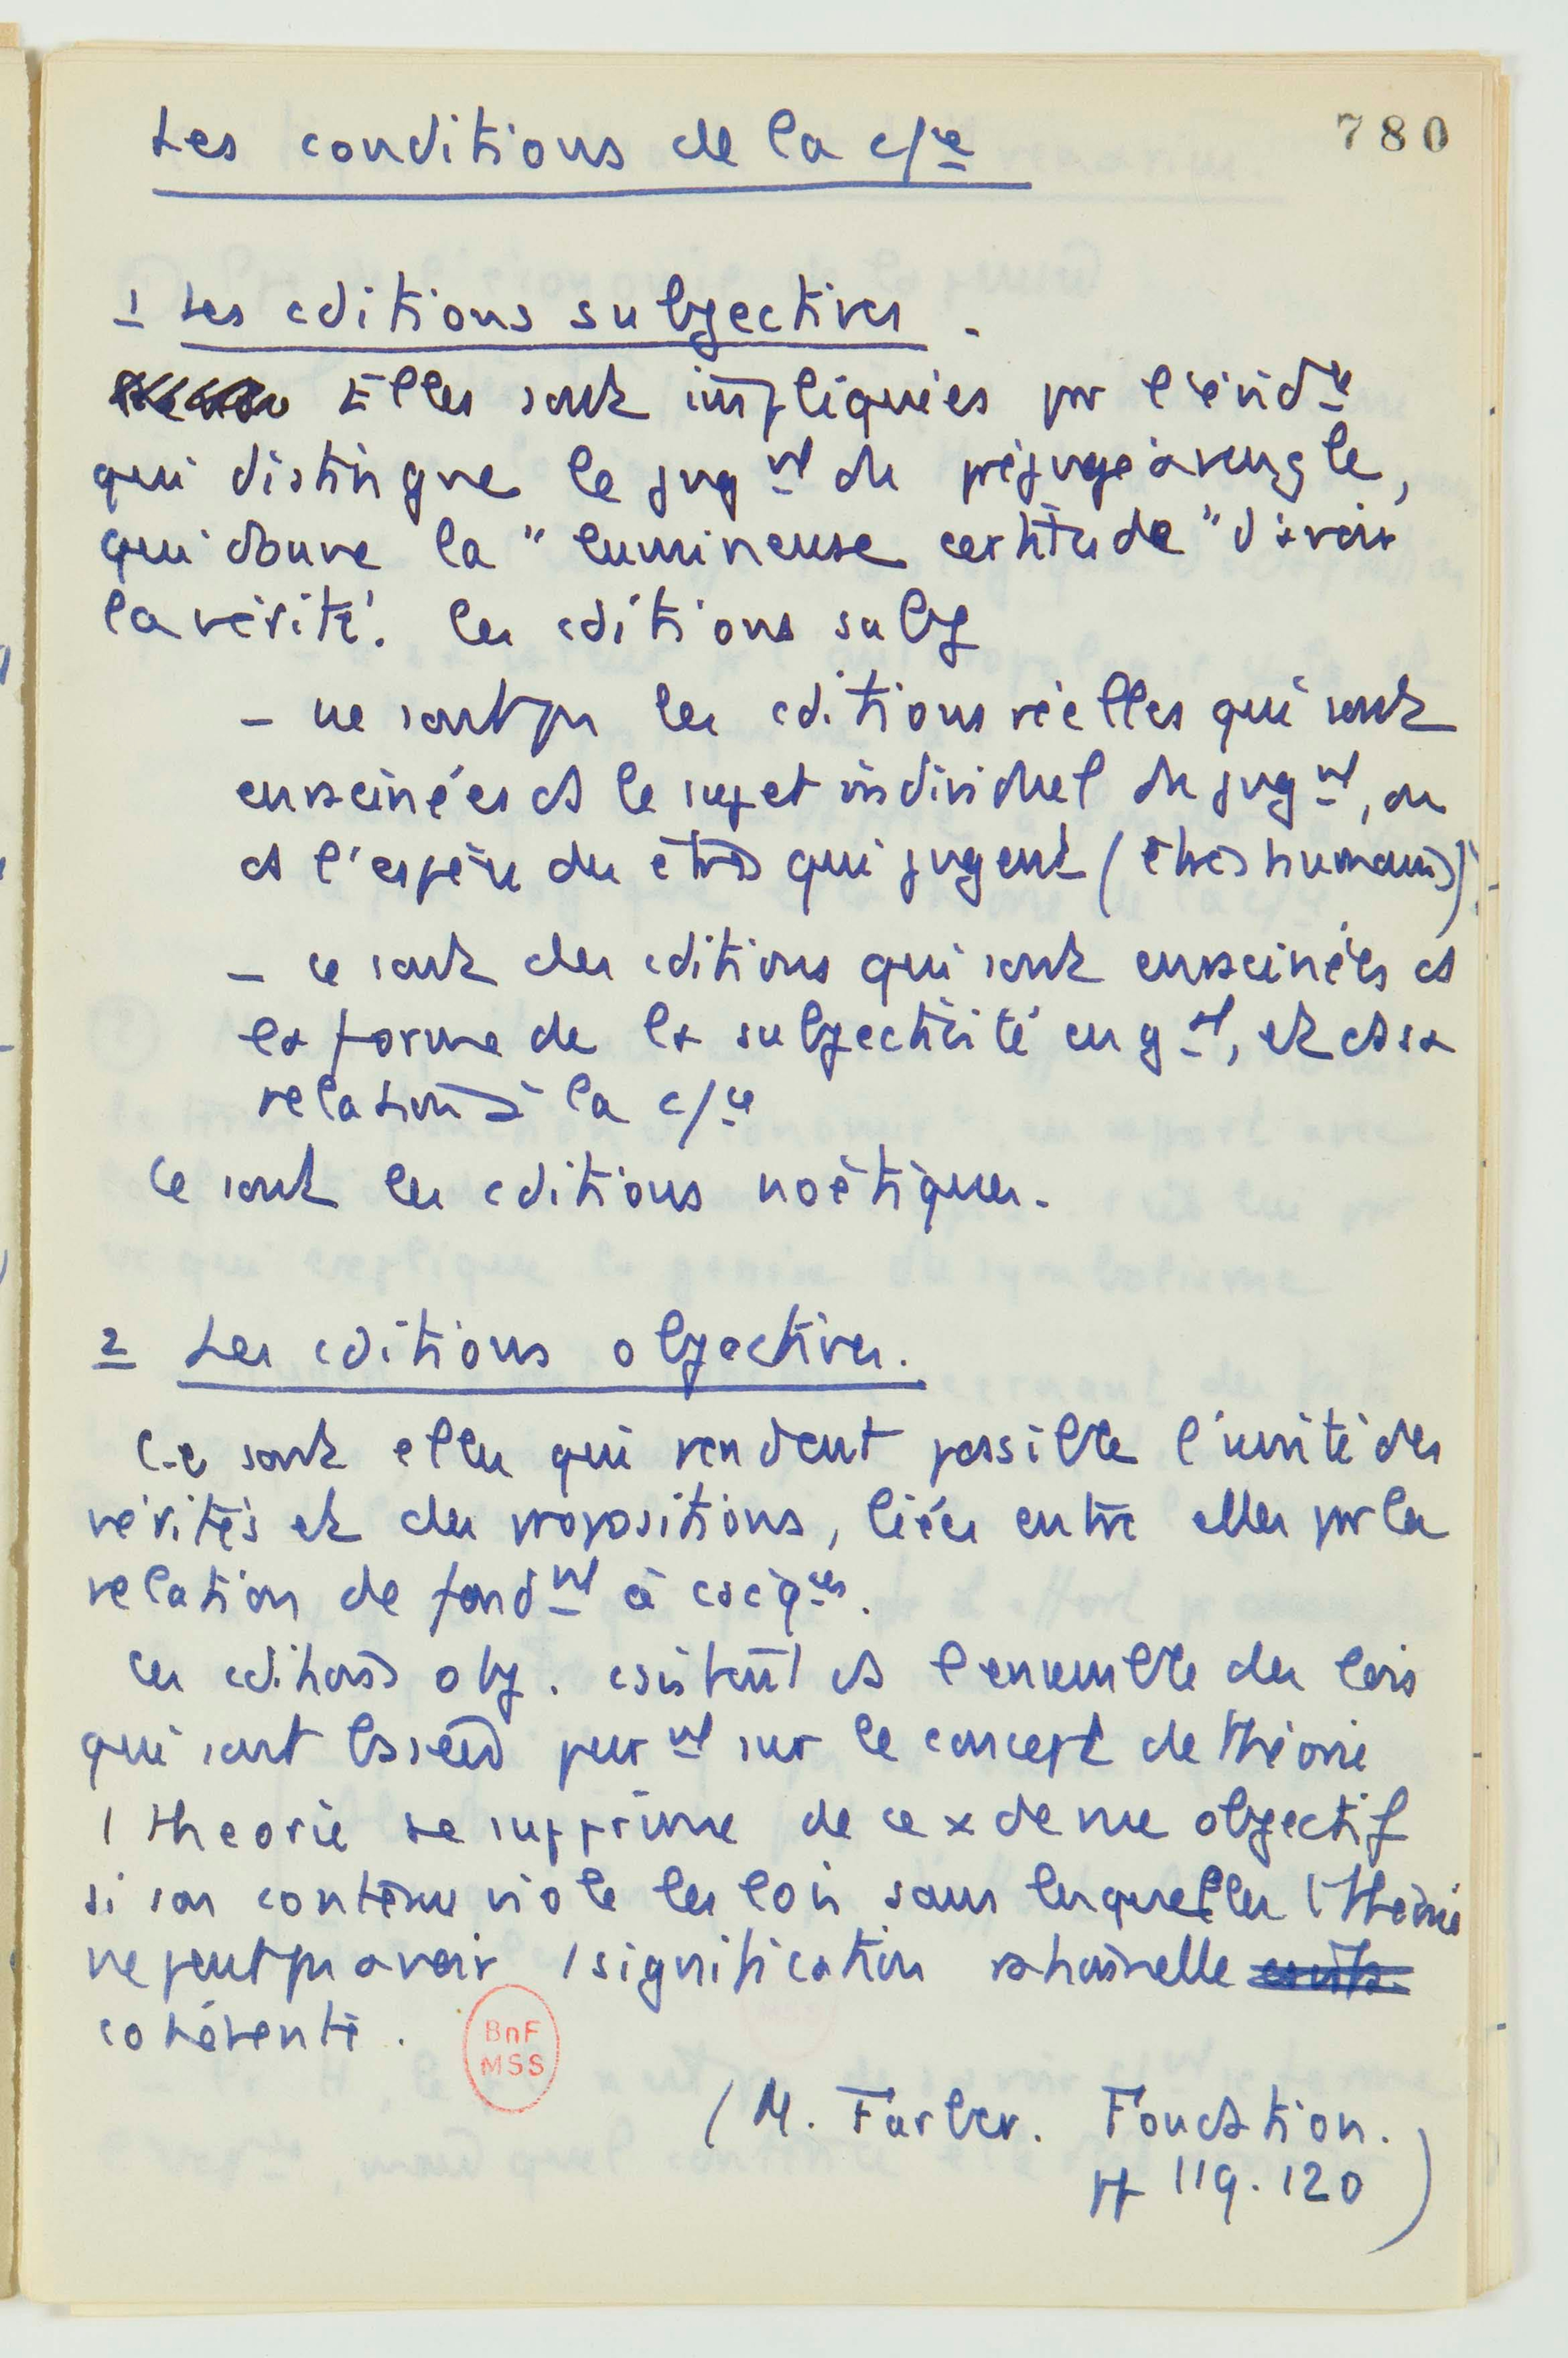 780
Les conditions de la c/ce
1 Les cditions subjectives.
Elles sont impliquées pr l'évidce
qui distingue le jugnt du préjugé aveugle,
qui donne la "lumineuse certitude" d'avoir
la vérité. les cditions subj
– ne sont pas les cditions réelles qui sont
enracinées ds le sujet individuel du jugnt, ou
ds l'espèce des êtres qui jugent (êtres humains).
– ce sont des cditions qui sont enracinées ds
la forme de la subjectivité en gal, et ds sa
relation à la c/ce
Ce sont les cditions noétiques.
2 Les cditions objectives.
Ce sont elles qui rendent possible l'unité des
vérités et des propositions, liées entre elles par la
relation de fondnt à cséqces.
Ces cditions obj. csistent ds l'ensemble des lois
qui sont basées purnt sur le concept de théorie
1 théorie se supprime de ce x de vue objectif
si son contenu viole les lois sans lesquelles 1 théorie
ne peut pas avoir 1 signification rationnelle
cohérente.
BnF
MSS
(M. Farber. Foundation.
pp 119.120)